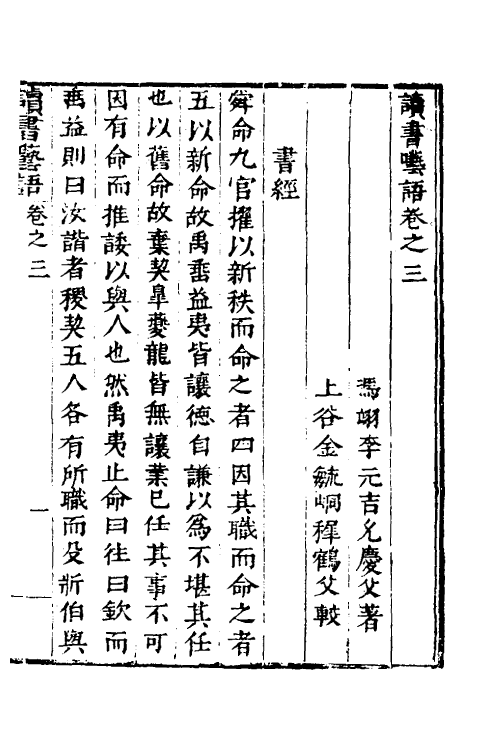 讀書囈語卷之三
馮翊李元吉允慶父著
上谷金毓峒稺鶴父較
書經
舜命九官擢以新秩而命之者四因其職而命之者
五以新命故禹垂益夷皆讓德自謙以為不堪其任
也以舊命故棄契臯夔龍皆無讓業已任其事不可
因有命而推諉以與人也然禹夷止命曰往曰欽而
禹益則曰汝諧者稷契五人各有所職而殳斨伯與
讀書囈語 卷之三 一